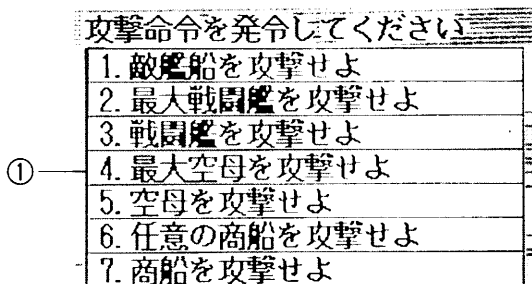 攻撃命令を発令してください
1. 敵艦船を攻撃せよ
2. 最大戦闘艦を攻撃せよ
3. 戦闘艦を攻撃せよ
① 4. 最大空母を攻撃せよ
5. 空母を攻撃せよ
6. 任意の商船を攻撃せよ
7. 商船を攻撃せよ